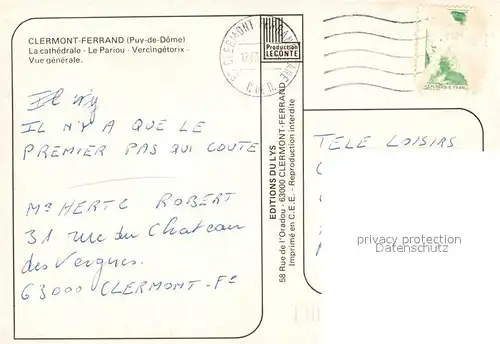 CLERMONT-FERRAND (Puy-de-Dôme)
La cathédrale - Le Pariou - Vercingétorix -
Vue générale.
Il n'y
IL N'Y A QUE LE
PREMIER PAS QUI COUTE
Mr HERTC ROBERT
31 rue du Chateau
des Vergnes.
63000 CLERMONT-Fd
Production
LECONTE
EDITIONS DU LYS
58 Rue de l'Oradou - 63000 CLERMONT-FERRAND
Imprimé en C.E.E. - Reproduction interdite
CLERMONT
P. DE D.
TELE LOISIRS
privacy protection
Datenschutz